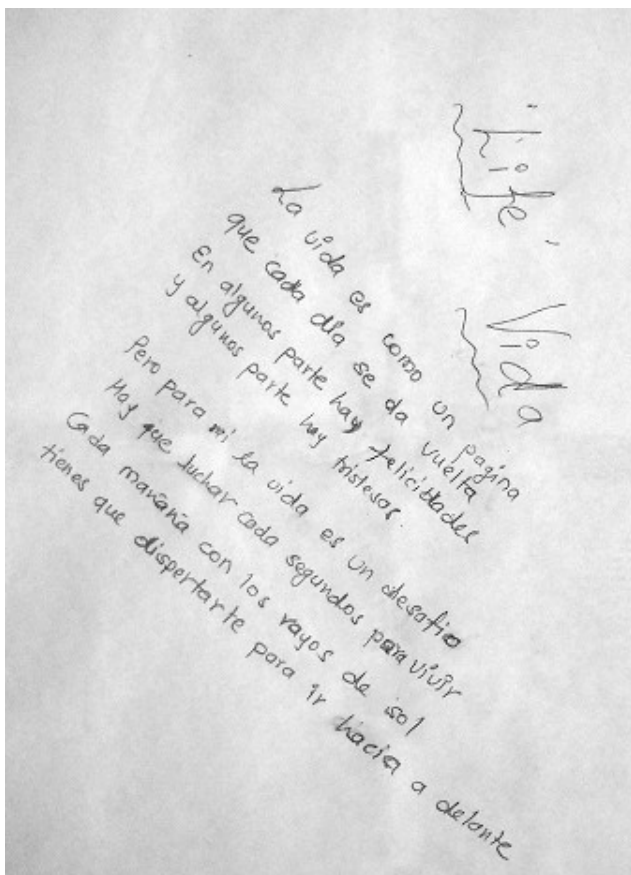 "Life"
Vida
La vida es como un pagina
que cada día se da vuelta
En algunos parte hay felicidades
y algunos parte hay tristesas.
Pero para mi la vida es un desafio
Hay que luchar cada segundos para vivir
Cada mañana con los rayos de sol
tienes que dispertarte para ir hacia a delante